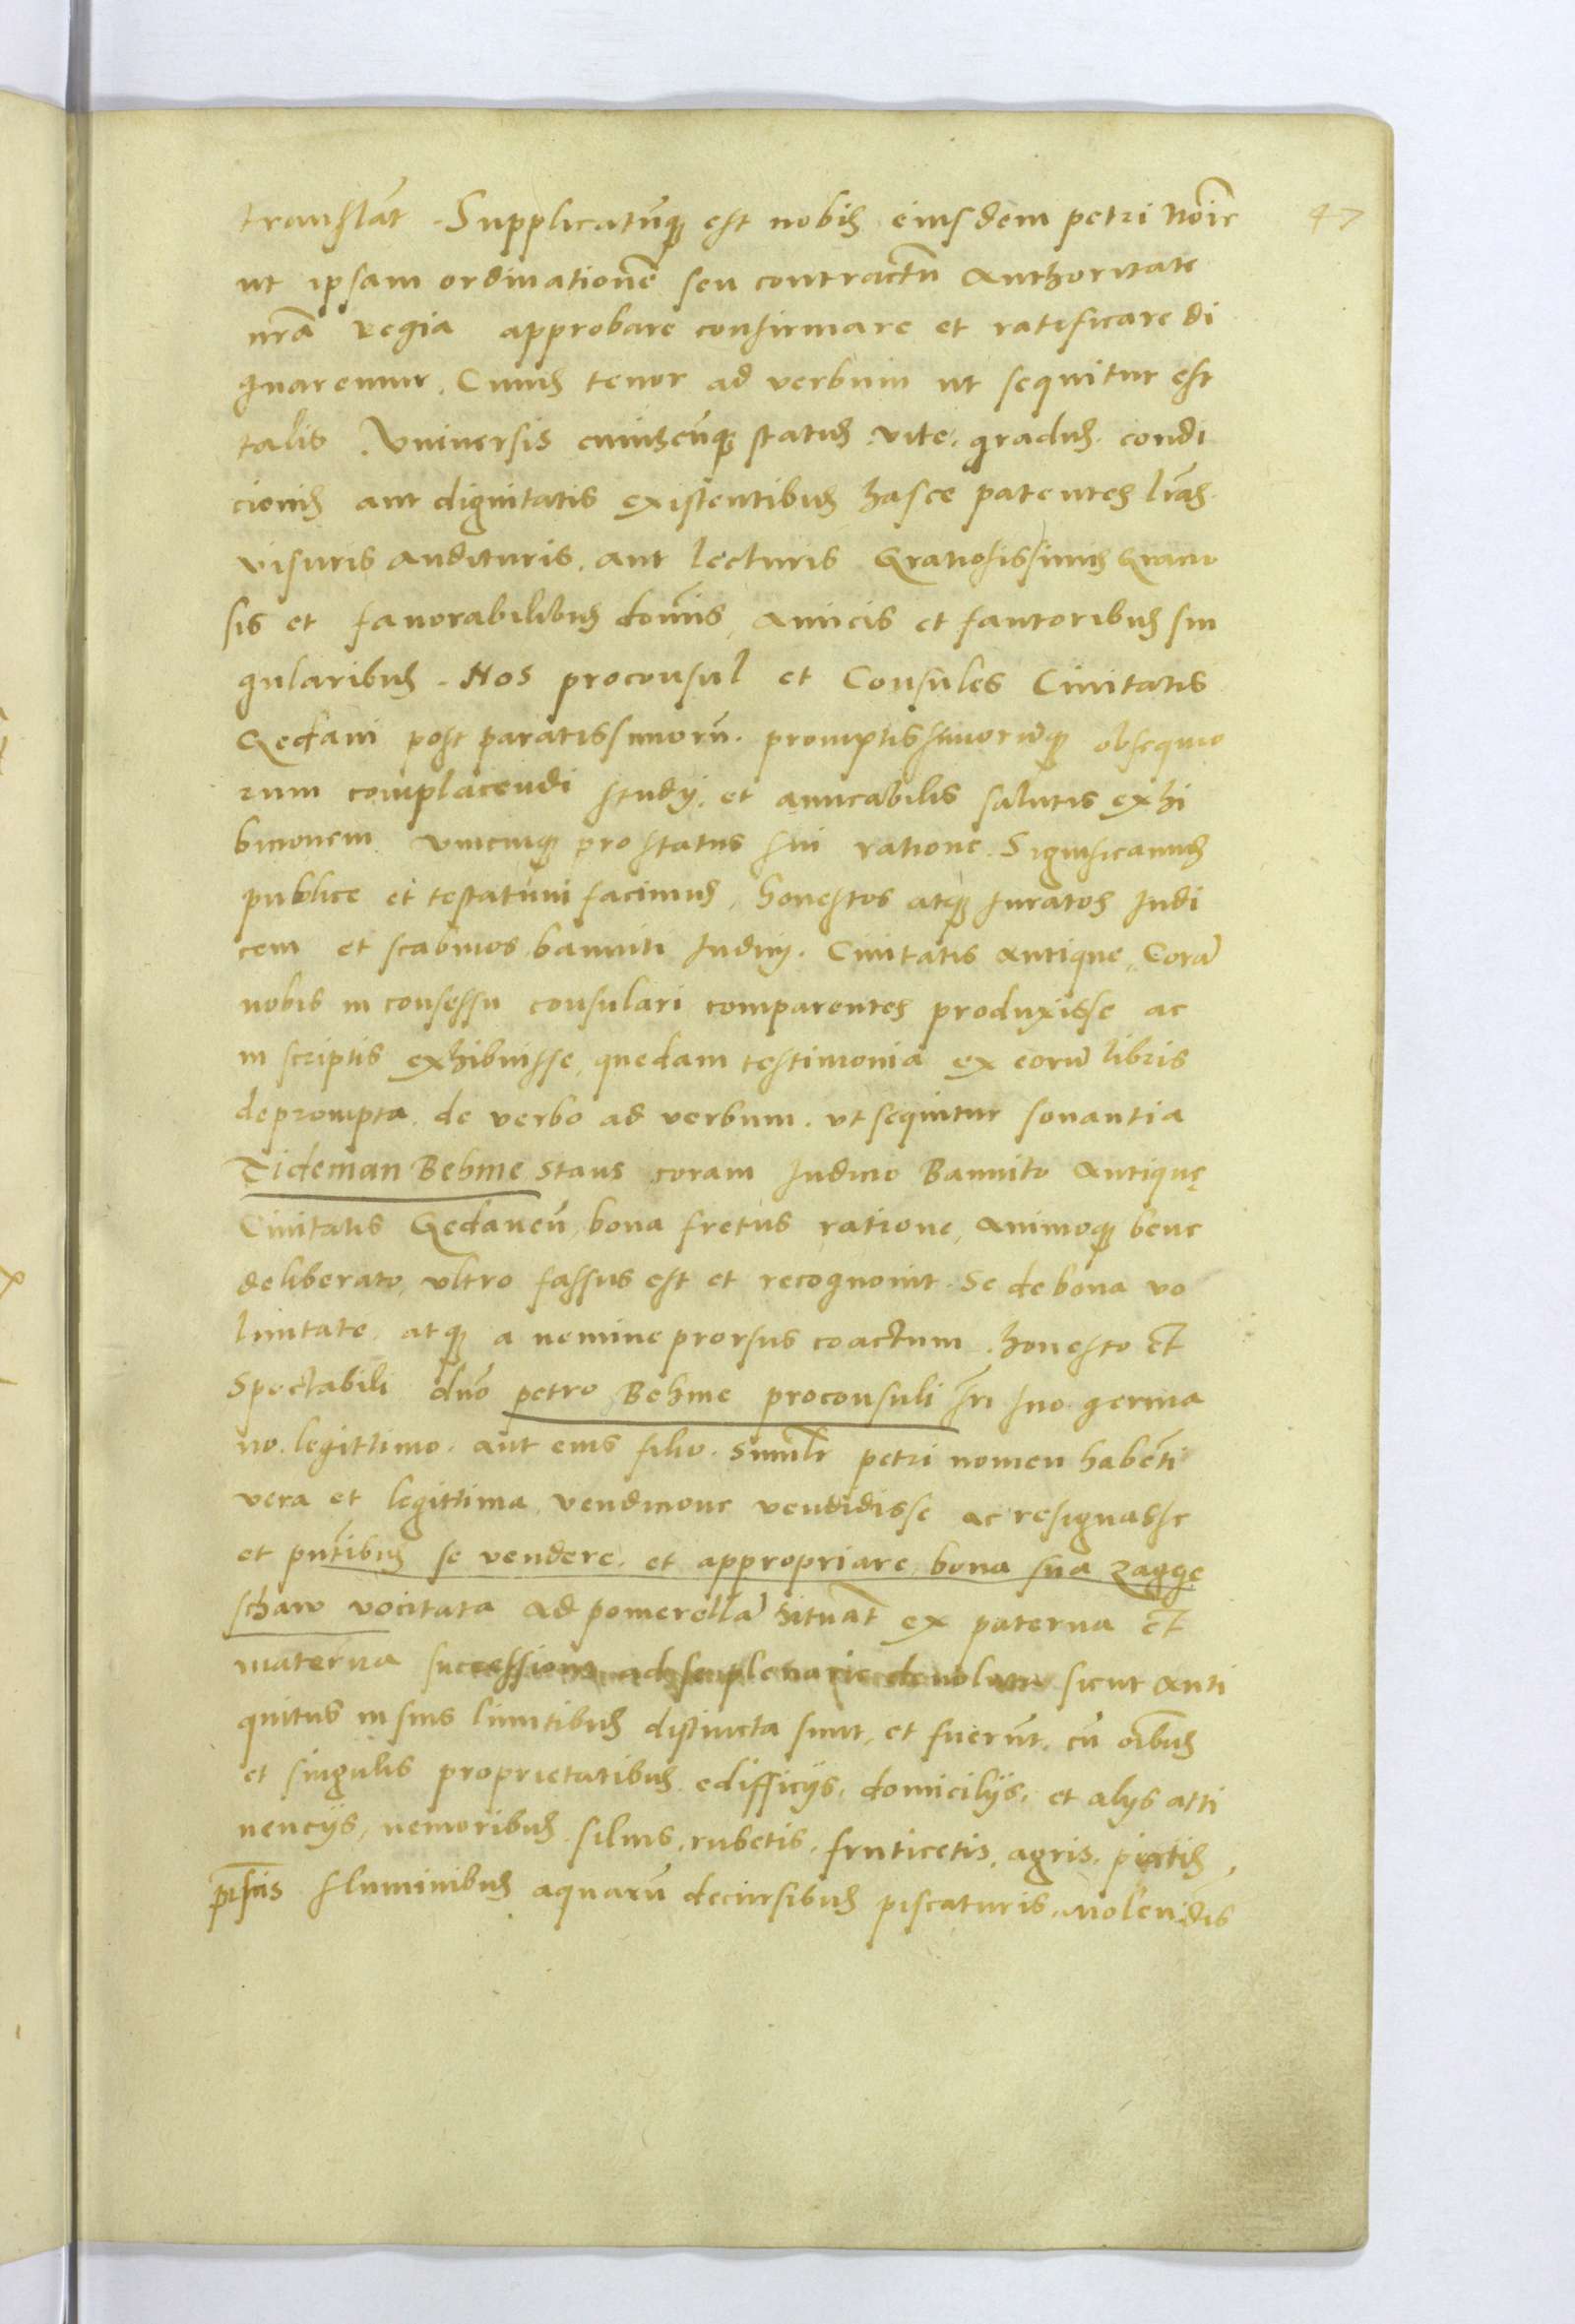 translat̄. Supplicatūq̷ est nobis eiusdem petri noīe 47
ut ipsam ordinationē seu contractū Authoritate
nrā regia approbare confirmare et ratificare di
gnaremur. Cuius tenor ad verbum ut sequitur est
talis. Vniuersis cuiuscūq̷ status vite, gradus condi
cionis aut dignitatis existentibus hasce patentes lrās
visuris audituris, aut lecturis Gratiosissimis Gracio
sis et fauorabilibus domīs, Amicis et fautoribus sin
gularibus. Nos proconsul et Consules Ciuitatis
Gedani post paratissimorū. promptissimorūq̷ obsequio
rum complacendi study, et amicabilis salutis exhi
bicionem vnicuiq̷ pro status sui ratione. Significamus
publice et testatum facimus, honestos atq̷ Iuratos Iudi
cem et scabinos banniti Iudicij. Ciuitatis Antique, Corā
nobis in consessu consulari comparentes produxisse ac
in scriptis exhibuisse, quedam testimonia ex eorū libris
deprompta, de verbo ad verbum, vt sequitur sonantia
Tideman Behme stans coram Iudicio Bannito Antiquę
Ciuitatis Gedaneñ, bona fretus ratione, Animoq̷ bene
deliberato, vltro fassus est et recognouit. Se de bona vo
luntate, atq̷ a nemine prorsus coactum, honesto et
Spectabili dn̄o petro Behme proconsuli fr̄i suo germa
no. legittimo. aut eius filio. simil̄r petri nomen habēti
vera et legittima vendicione vendidisse ac resignasse
et pn̄tibus se vendere. et appropriare bona sua Zagge
schaw vocitata Ad pomerellā situat̄ ex paterna et
materna successione ad se plenarie deuoluta sicut Anti
quitus in suis limitibus distincta sunt, et fuerūt, cū oībus
et singulis proprietatibus edifficijs, domicilijs, et alijs atti
nencijs, nemoribus siluis, rubetis, fruticetis, agris, pratis,
piscīs fluminibus aquarū decursibus piscaturis, molendis